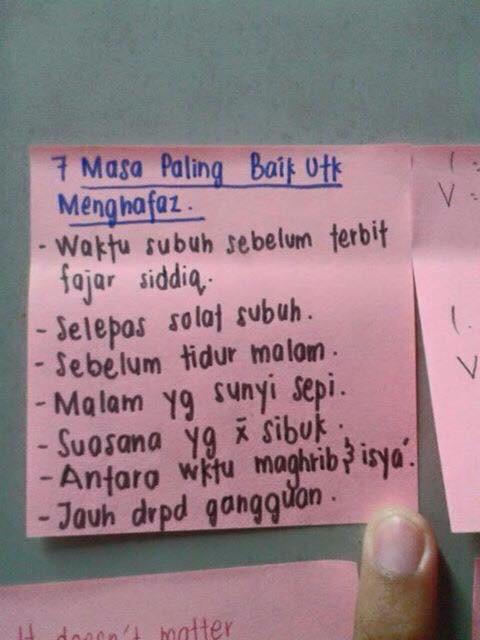 7 Masa Paling Baik Utk
Menghafaz.
- Waktu subuh sebelum terbit
fajar siddiq.
- Selepas solat subuh.
- Sebelum tidur malam.
- Malam yg sunyi sepi.
- Suasana yg x̄ sibuk.
- Antara wktu maghrib & isya'.
- Jauh drpd gangguan.
1.
V
1.
V
It doesn't matter